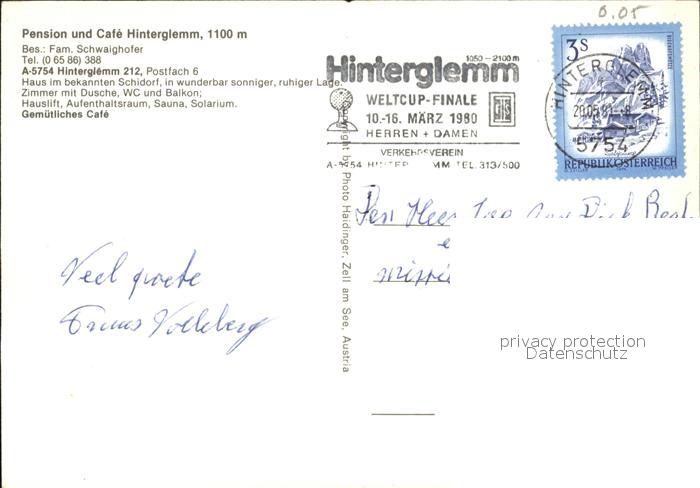 0.05
Pension und Café Hinterglemm, 1100 m
Bes.: Fam. Schwaighofer
Tel. (0 65 86) 388
A-5754 Hinterglemm 212, Postfach 6
Haus im bekannten Schidorf, in wunderbar sonniger, ruhiger Lage.
Zimmer mit Dusche, WC und Balkon;
Hauslift, Aufenthaltsraum, Sauna, Solarium.
Gemütliches Café
1050-2100m
Hinterglemm
WELTCUP-FINALE
10.-16. MÄRZ 1980
HERREN + DAMEN
VERKEHRSVEREIN
TEL. 313/500
3 S
HINTERGLEMM
5754
REPUBLIK ÖSTERREICH
Copyright by Photo Haidinger, Zell am See, Austria
Den Heer
Veel groete
privacy protection
Datenschutz